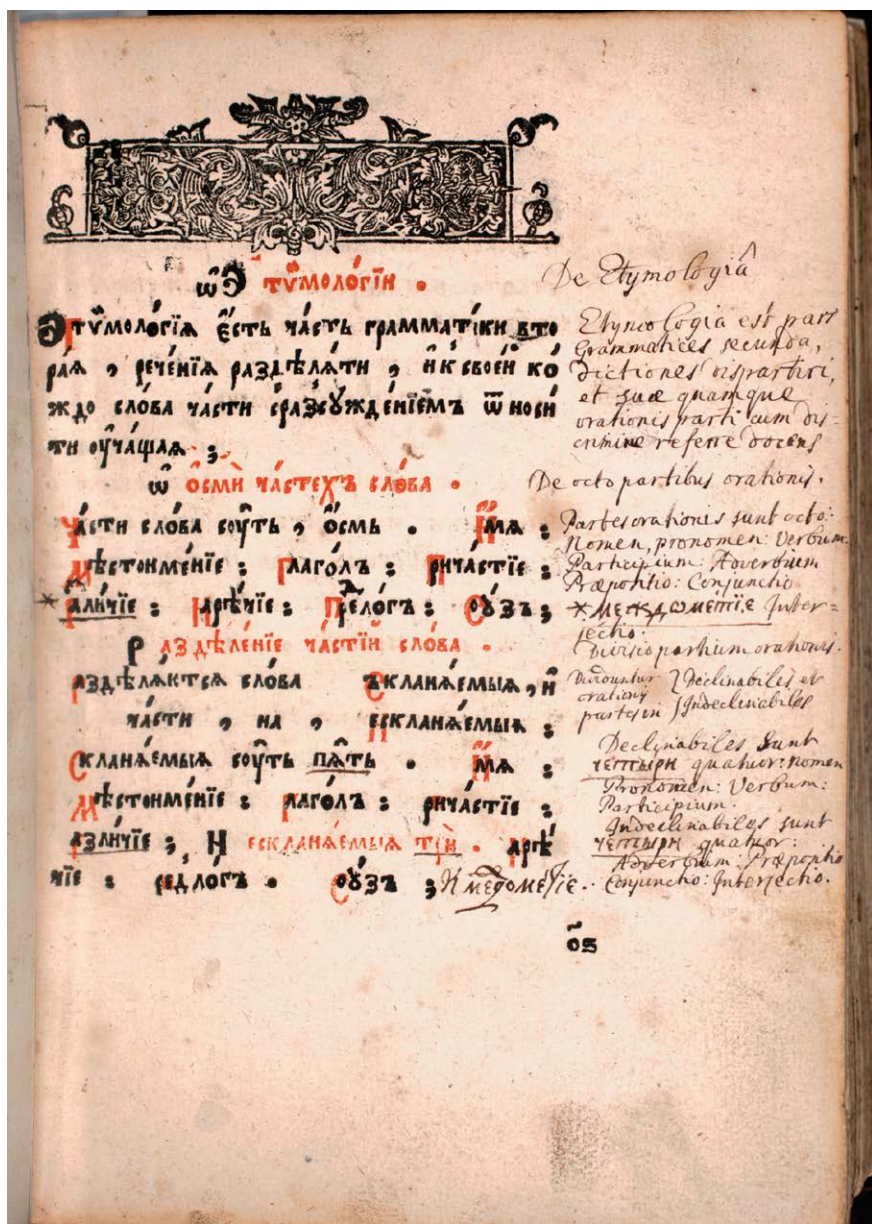 ѿ Этѷмоло́гїи .
Этѷмоло́гїѧ є҆́сть ча́сть грамматі́ки вто
ра́ѧ , рече́нїѧ раздѣлѧ́ти , и҆ к свое́й ко́
ждо сло́ва ча́сти сразсꙋжде́нїемъ ѿноси́
ти оу҆ча́щаѧ ;
ѿ о҆сми́ ча́стехъ сло́ва .
Ча́сти сло́ва сꙋ́ть , о҆́смь . И҆́мѧ :
Мѣстоиме́нїе : Глаго́лъ : Прича́стїе :
* Разли́чїе : Нарѣ́чїе : Предло́гъ : Сою́зъ ;
Раздѣле́нїе часті́й сло́ва .
Раздѣлѧ́ютсѧ сло́ва Скланѧ́емыѧ , и҆
ча́сти , на , Нескланѧ́емыѧ :
Скланѧ́емыѧ сꙋ́ть пѧ́ть . И҆́мѧ :
Мѣстоиме́нїе : Глаго́лъ : Прича́стїе :
Разли́чїе ; Нескланѧ́емыѧ трѝ . Нарѣ́
чїе : Предло́гъ . Сою́зъ ; И медометїе .
о҃в
De Etymologiâ
Etymologia est pars
Grammatices secunda,
dictiones dispartiri,
et suæ quamque
orationis parti cum dis-
crimine referre docens
De octo partibus orationis.
Partes orationis sunt octo:
Nomen, pronomen: Verbum.
Participium: Adverbium
Præpositio: Conjunctio
* междометїе Inter=
jectio.
Divisio partium orationis.
Dividuntur } Declinabiles et
orationis
partes in } Indeclinabiles
Declinabiles sunt
четыри quatuor: Nomen
Pronomen: Verbum:
Participium.
Indeclinabiles sunt
четыри quatuor:
Adverbium: Præpositio
Conjunctio: Interjectio.